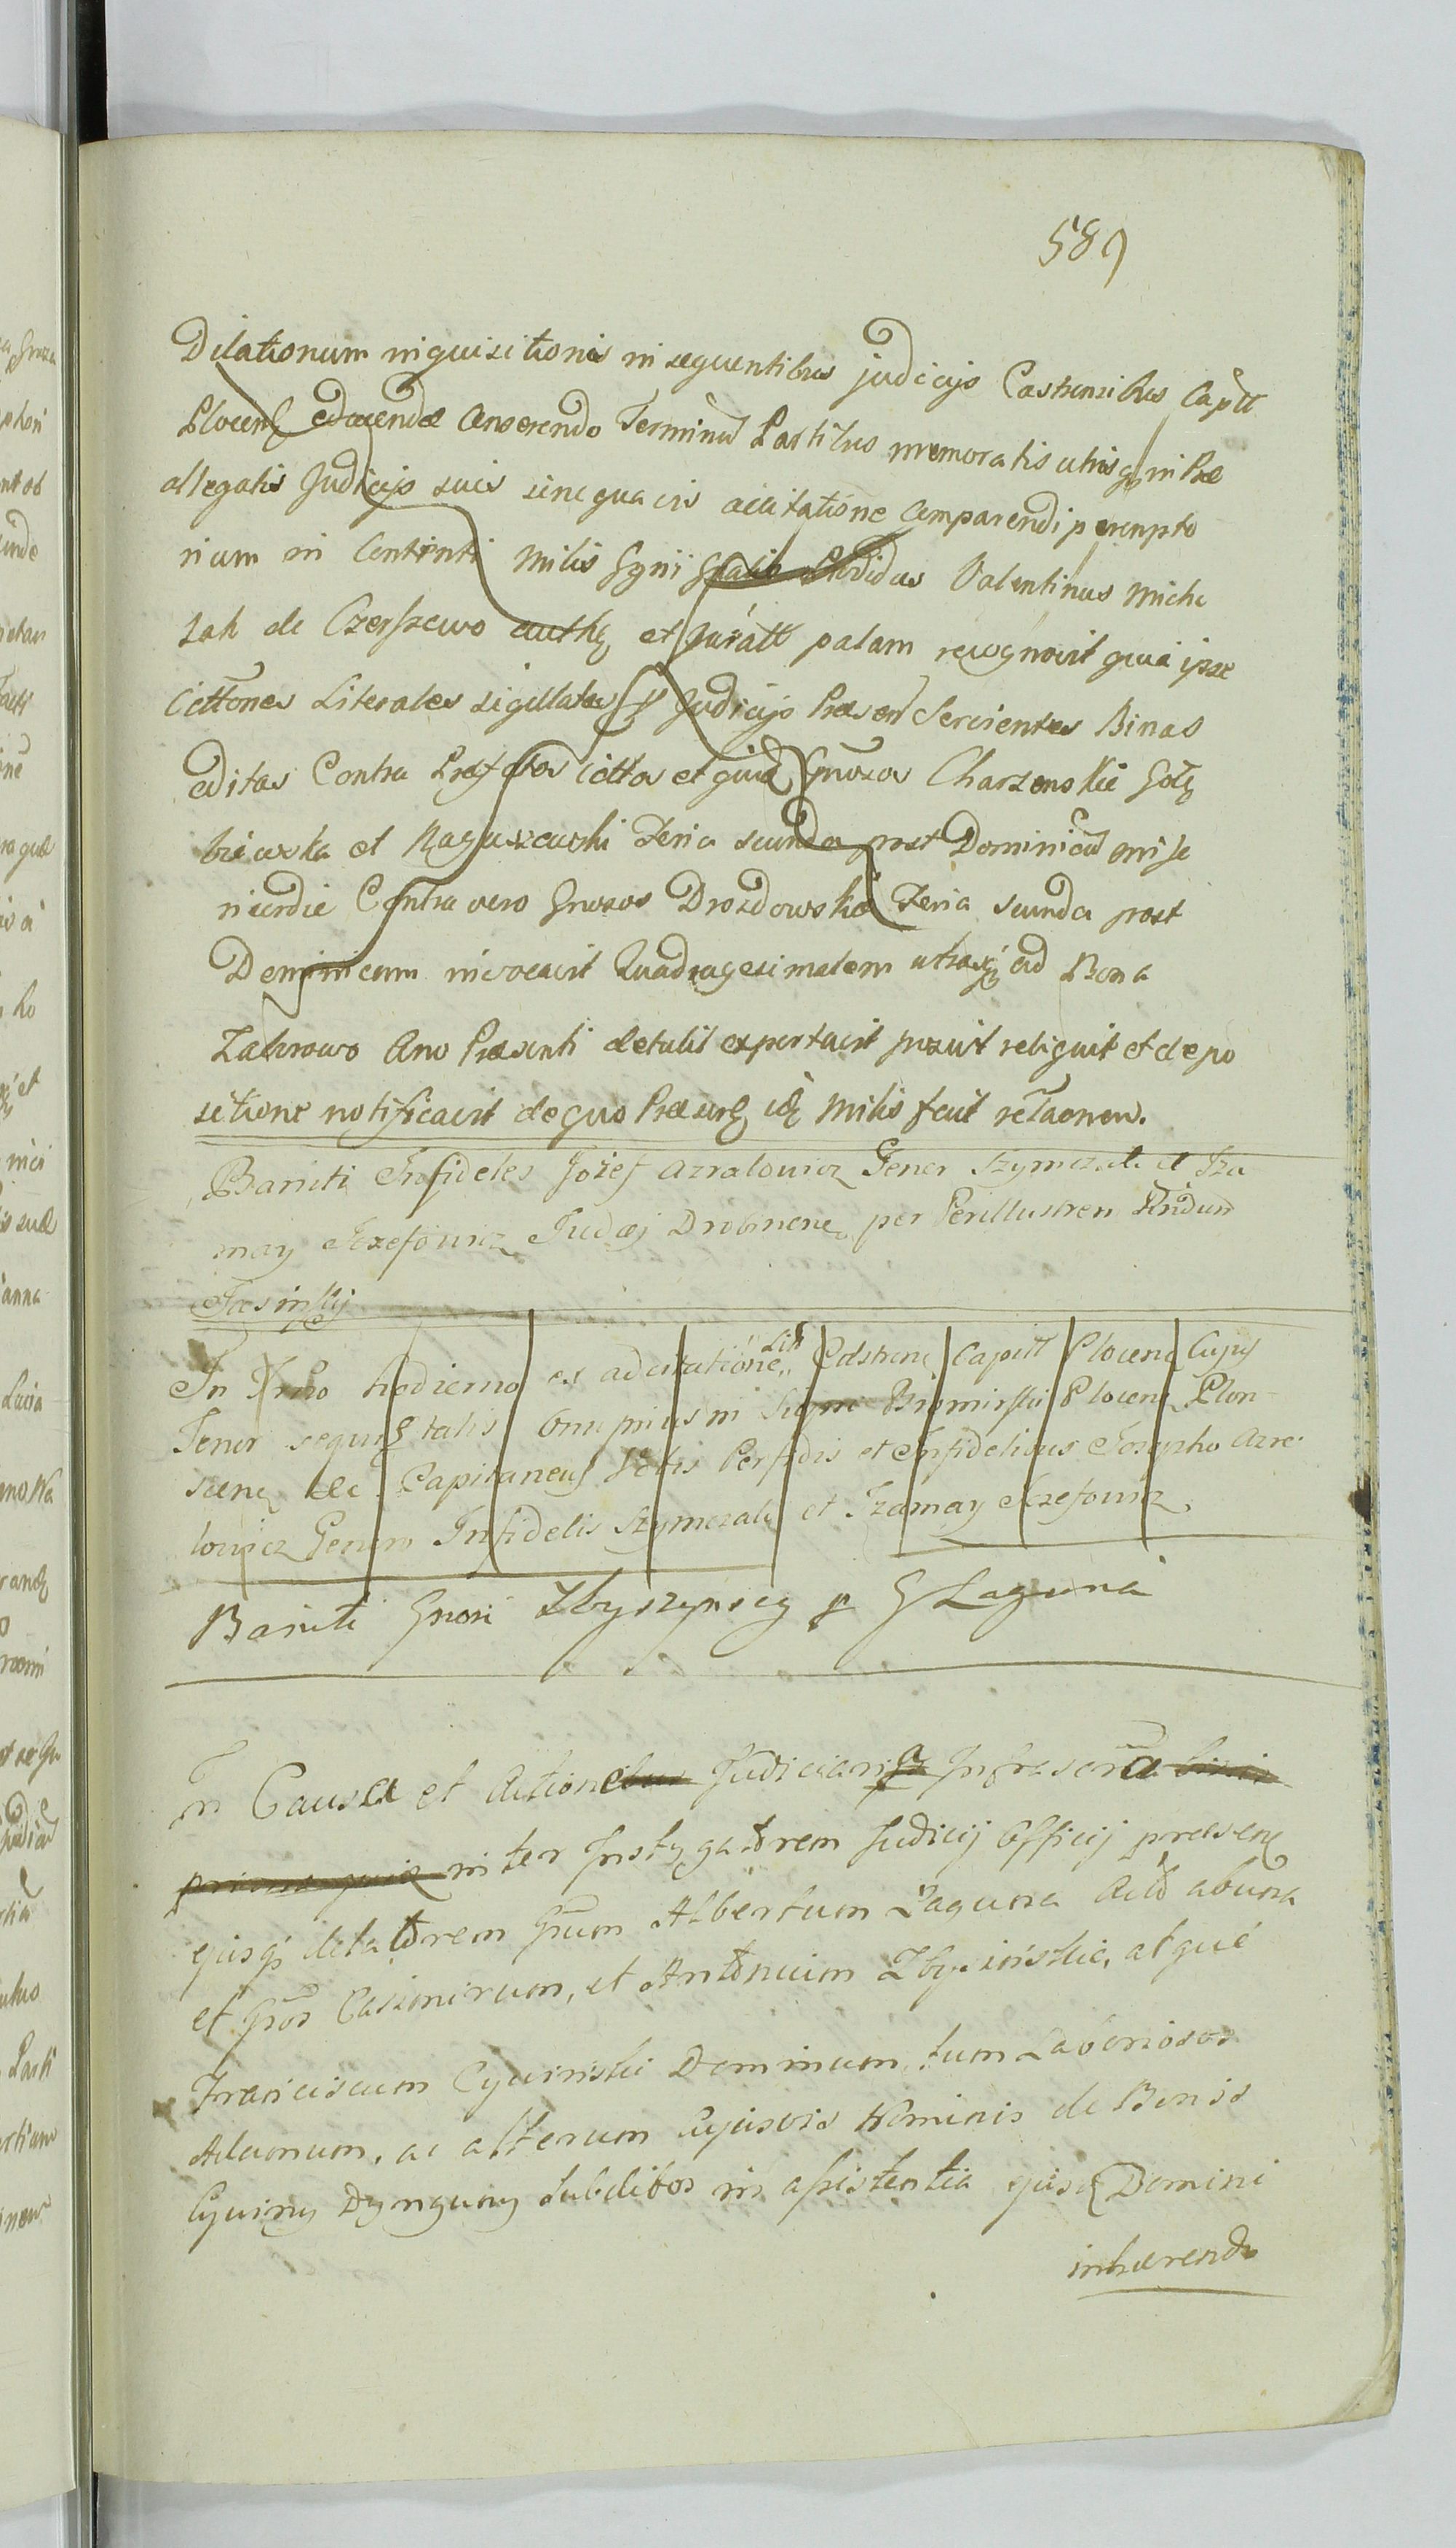 589
Dilationum inquisitionis in sequentibus judicijs Castrensibus Captt
Plocens educendæ conserendo Terminū Partibus memoratis utrisq in Præ
allegatis Judicijs suis sine quavis acitatione comparendi perempto
rium in Continti Milis Gnii Providus Valentinus Mich
zak de Czerszewo authq et juratt palam recognovit quia ipse
Cittones Literales sigillatas Judicijo Præsen Servientes Binas
editas Contra Præfatos cittos et quid Gnrosos Charzenskie Goł
biewska et Raguszewski Feria secunda post Dominicā
Contra vero Gnrosos Drozdowskie Feria secunda post
Dominicam invocavit Quadragesimalem utrasq ad Bona
Zabrowo Ano Præsenti detulit exportavit posuit reliquit et depo
sitione notificavit de quo Præsens idē Milis fecit relaonem.
Baniti Infideles Jozef Azralowicz Gener Szymczak et Iza
may Jozefowicz Judæj Drobnene per Perillustrem
Jasinskij
In Trno hodierno ex adcitatione Lith Castrene Captt Plocene Cujus
Tenor sequis talis Onuphrius in Plocens Plon-
scene &c Capitaneus Vobis Perfidis et Infidelibus Josepho Azra
lowicz Genero Infidelis Szymczak et Izamay Jozefowicz,
Baniti Gnrosi Zbyszynscy p G Laguna
In Causa et Actione Judiciaria Infrascrta
inter Instygatorem Judicij Officij præsens
ejusq delatorem Gnrum Albertum Laguna Actō ab una
et Gnros Casimirum, et Antonium Zbysinskie, atque
Franciscum Cywinski Dominum, tum Laboriosos
Adamum, ac alterum Cujusvis Nominis de Bonis
Cywiny Dynguny Subditos in assistentia ejusq Domini
inhærendo